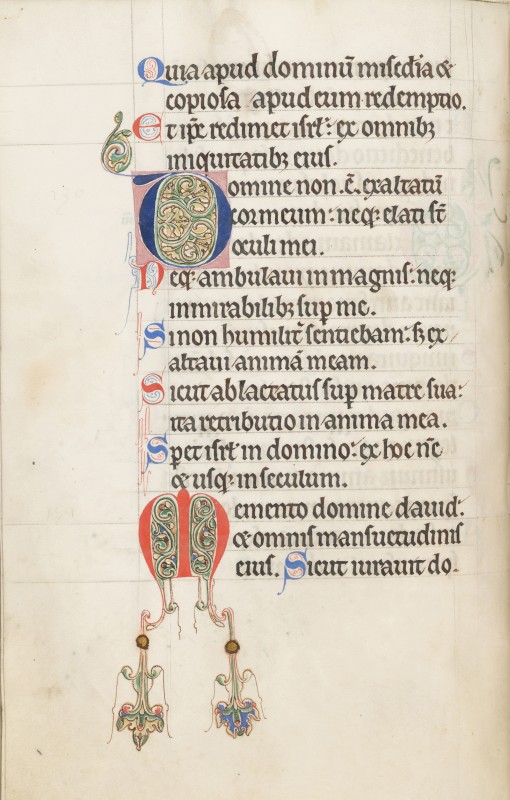 Quia apud dominū misc̄dia &
copiosa apud eum redemptio.
Et ip̄e redimet isrl̄: ex omnibꝫ
iniquitatibꝫ eius.
Domine non. ē. exaltatū
cor meum: neqꝫ elati st̄
oculi mei.
Neqꝫ ambulaui in magnis: neqꝫ
in mirabilibꝫ sup̄ me.
Si non humilit̄ sentiebam: sꝫ ex
altaui animā meam.
Sicut ablactatus sup̄ matre sua:
ita retributio in anima mea.
Speret isrl̄ in domino: ex hoc nc̄
& usqꝫ in seculum.
Memento domine dauid:
& omnis mansuetudinis
eius. Sicut iurauit do-